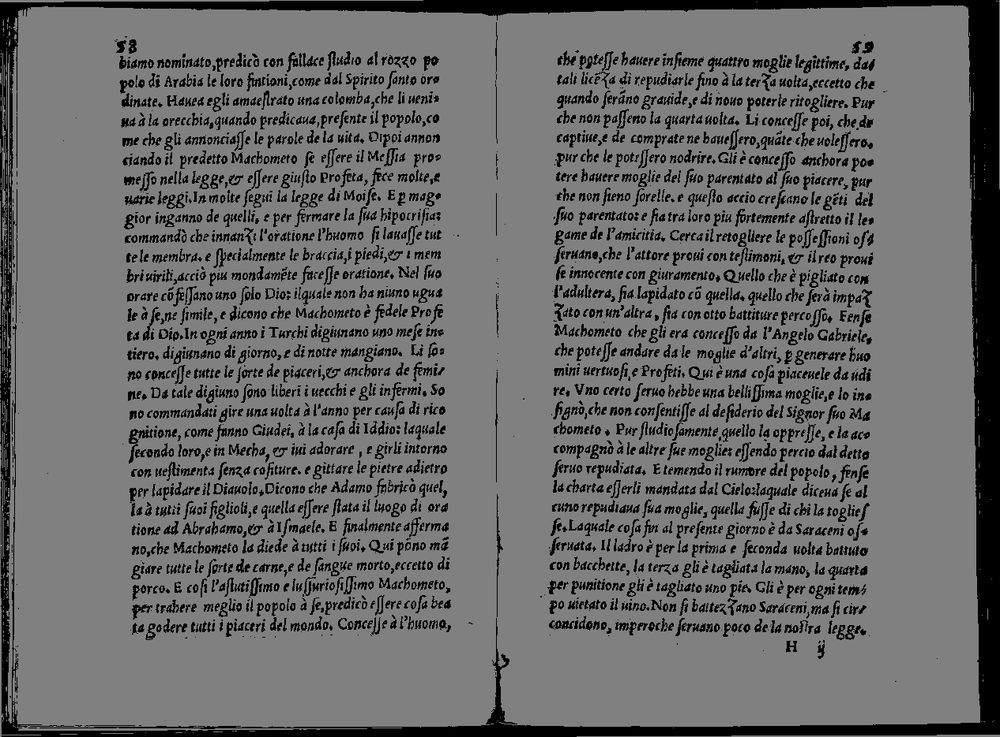 58
biamo nominato, predicò con fallace studio al rozzo po
polo di Arabia le loro fintioni, come dal Spirito santo or=
dinate. Hauea egli amaestrato una colomba, che li ueni=
ua à la orecchia, quando predicaua, presente il popolo, co
me che gli annonciasse le parole de la uita. Dipoi annon
ciando il predetto Machometo se essere il Messia pro=
messo nella legge, & essere giusto Profeta, fece molte, e
uarie leggi. In molte seguì la legge di Moise. E ꝑ mag=
gior inganno de quelli, e per fermare la sua hipocrisia:
commandò che innanzi l'oratione l'huomo si lauasse tut
te le membra. e specialmente le braccia, i piedi, & i mem
bri uirili, acciò piu mondamẽte facesse oratione. Nel suo
orare cõfessano uno solo Dio: ilquale non ha niuno ugua
le à se, ne simile, e dicono che Machometo è fedele Profe
ta di Dio. In ogni anno i Turchi digiunano uno mese in=
tiero. digiunano di giorno, e di notte mangiano. Li so=
no concesse tutte le sorte de piaceri, & anchora de femi=
ne. Da tale digiuno sono liberi i uecchi e gli infermi. So
no commandati gire una uolta à l'anno per causa di rico
gnitione, come fanno Giudei, à la casa di Iddio: laquale
secondo loro, e in Mecha, & iui adorare, e girli intorno
con uestimenta senza cositure. e gittare le pietre adietro
per lapidare il Diauolo. Dicono che Adamo fabricò quel,
la à tutti suoi figlioli, e quella essere stata il luogo di ora
tione ad Abrahamo, & à Ismaele. E finalmente afferma
no, che Machometo la diede à tutti i suoi. Qui põno mã
giare tutte le sorte de carne, e de sangue morto, eccetto di
porco. E cosi l'astutissimo e lussuriosissimo Machometo,
per trahere meglio il popolo à se, predicò essere cosa bea
ta godere tutti i piaceri del mondo. Concesse à l'huomo,
59
che potesse hauere insieme quattro moglie legittime, da=
tali licẽza di repudiarle fino à la terza uolta, eccetto che
quando serãno grauide, e di nouo poterle ritogliere. Pur
che non passeno la quarta uolta. Li concesse poi, che, de
captiue, e de comprate ne hauessero, quãte che uolessero.
pur che le potessero nodrire. Gli è concesso anchora po=
tere hauere moglie del suo parentato al suo piacere, pur
che non sieno sorelle. e questo accio crescano le gẽti del
suo parentato: e sia tra loro piu fortemente astretto il le=
game de l'amicitia. Cerca il retogliere le possessioni os=
seruano, che l'attore proui con testimoni, & il reo proui
se innocente con giuramento. Quello che è pigliato con
l'adultera, sia lapidato cõ quella. quello che serà impaz
zato con un'altra, sia con otto battiture percosso. Fense
Machometo che gli era concesso da l'Angelo Gabriele,
che potesse andare da le moglie d'altri, ꝑ generare huo
mini uertuosi, e Profeti. Qui è una cosa piaceuele da udi
re. Vno certo seruo hebbe una bellissima moglie, e lo in=
signò, che non consentisse al desiderio del Signor suo Ma
chometo. Pur studiosamente, quello la oppresse, e la ac=
compagnò à le altre sue moglie: essendo percio dal detto
seruo repudiata. E temendo il rumore del popolo, fense
la charta esserli mandata dal Cielo: laquale diceua se al
cuno repudiaua sua moglie, quella fusse di chi la toglies
se. Laquale cosa fin al presente giorno è da Saraceni os=
seruata. Il ladro è per la prima e seconda uolta battuto
con bacchette, la terza gli è tagliata la mano, la quarta
per punitione gli è tagliato uno pie. Gli è per ogni tem=
po uietato il uino. Non si battezzano Saraceni, ma si cir=
concidono, imperoche seruano poco de la nostra legge.
H ij